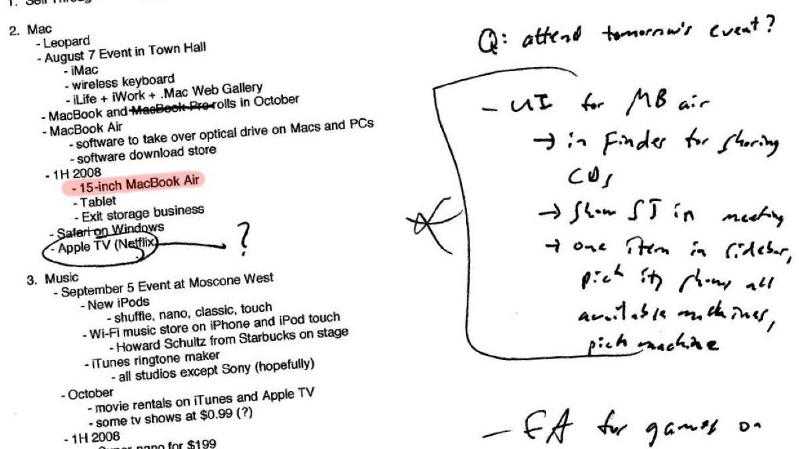 1. Sell Through
2. Mac
- Leopard
- August 7 Event in Town Hall
- iMac
- wireless keyboard
- iLife + iWork + .Mac Web Gallery
- MacBook and MacBook Pro rolls in October
- MacBook Air
- software to take over optical drive on Macs and PCs
- software download store
- 1H 2008
- 15-inch MacBook Air
- Tablet
- Exit storage business
- Safari on Windows
- Apple TV (Netflix) ?
3. Music
- September 5 Event at Moscone West
- New iPods
- shuffle, nano, classic, touch
- Wi-Fi music store on iPhone and iPod touch
- Howard Schultz from Starbucks on stage
- iTunes ringtone maker
- all studios except Sony (hopefully)
- October
- movie rentals on iTunes and Apple TV
- some tv shows at $0.99 (?)
- 1H 2008
nano for $199
Q: attend tomorrow's event?
- UI for MB air
→ in Finder for sharing
CDs
→ show SJ in meeting
→ one item in sidebar,
pick it, shows all
available machines,
pick machine
- EA for games on